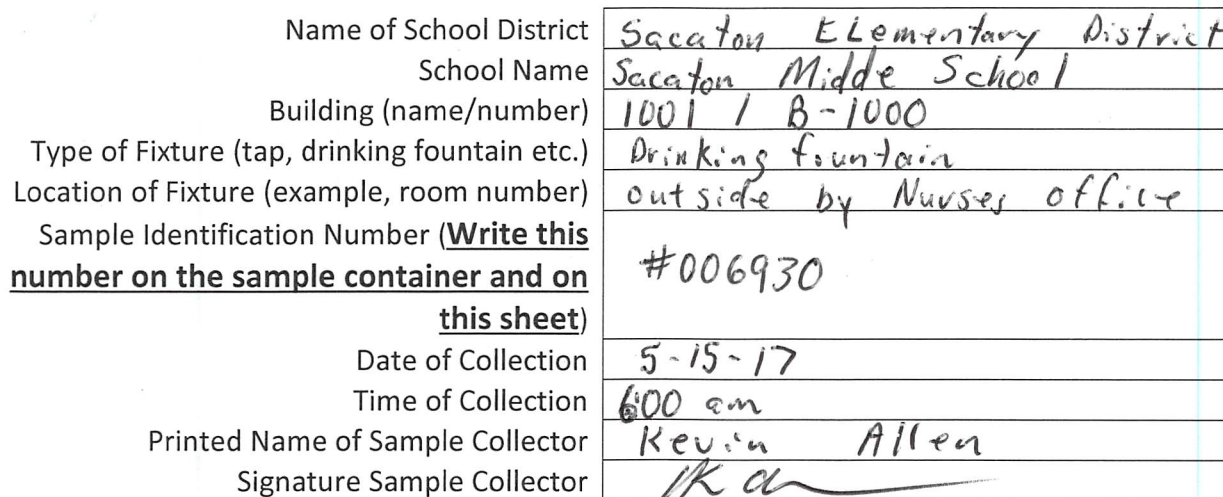 Name of School District Sacaton ELementary District
School Name Sacaton Midde School
Building (name/number) 1001 / B-1000
Type of Fixture (tap, drinking fountain etc.) Drinking fountain
Location of Fixture (example, room number) outside by Nurses office
Sample Identification Number (Write this
number on the sample container and on #006930
this sheet)
Date of Collection 5-15-17
Time of Collection 6:00 am
Printed Name of Sample Collector Kevin Allen
Signature Sample Collector